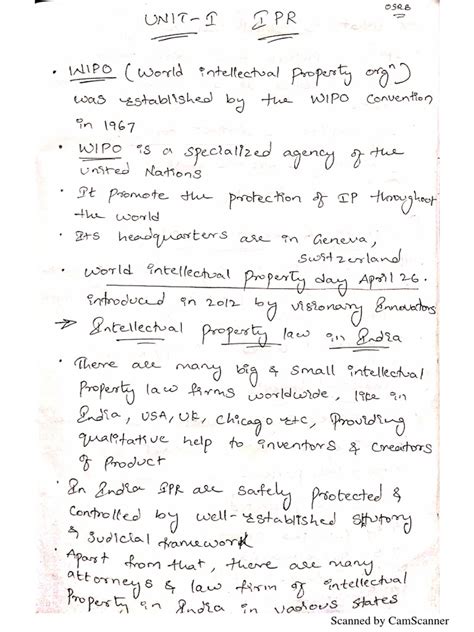 OSRB
UNIT-I IPR
• WIPO (World intellectual property orgn)
was established by the WIPO Convention
in 1967
• WIPO is a specialized agency of the
United Nations
• It promote the protection of IP throughout
the world
• Its headquarters are in Geneva,
Switzerland
• World intellectual Property day April 26.
introduced in 2012 by visionary Innovators
→ Intellectual property law in India
• There are many big & small intellectual
Property law firms worldwide, like in
India, USA, UK, Chicago etc, Providing
qualitative help to inventors & creators
of Product
• In India IPR are safely protected &
Controlled by well-established stutory
& Judicial framework
• Apart from that, there are many
attorneys & law firm of intellectual
Property in India in various states
Scanned by CamScanner